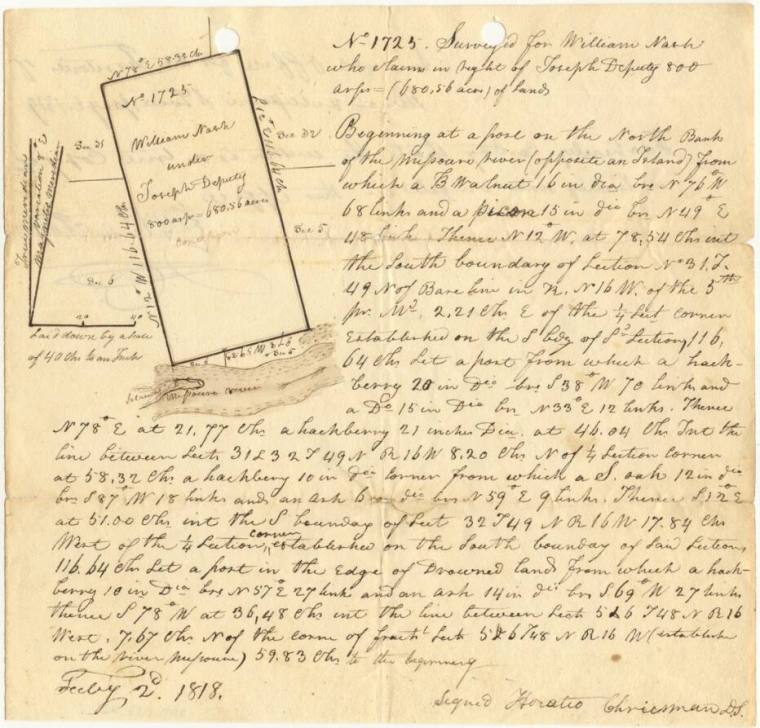 No 1725. Surveyed for William Nash
who claims in right of Joseph Deputy 800
arps = (680,56 acres) of Lands
Beginning at a post on the North Bank
of the Missouri river (opposite an Island) from
which a B Walnut 16 in dia brs N 76° W
68 links and a 15 in dia brs N 49° E
48 links Thence N 12° W. at 78,54 Chs int
the South boundary of Section No 31. T.
49 N of Base line in R. No 16 W. of the 5th
pr. Md. 2,21 Chs E of the 1/4 Sect corner
Established on the S bdy of Sd Section, 116,
64 Chs Set a post from which a hack-
berry 20 in Dia brs S 38° W 70 links and
a Do 15 in Dia brs N 33° E 12 links. Thence
N 78° E at 21.77 Chs a hackberry 21 inches Dia. at 46.04 Chs Int the
line between Sects 31 & 32 T 49 N R 16 W 8.20 Chs N of 1/4 Section corner
at 58,32 Chs a hackbery 10 in dia corner from which a S. oak 12 in dia
brs S 87° W 18 links and an ash 6 in dia brs N 59° E 9 links. Thence S 12° E
at 51.00 Chs int the S bounday of Sect 32 T 49 N R 16 W 17.84 Chs
West of the 1/4 Section corner established on the South bounday of Said Sections
116.64 Chs Set a post in the Edge of Drowned lands from which a hack-
berry 10 in Dia brs N 57° E 27 links and an ash 14 in dia brs S 69° W 27 links
thence S 78° W at 36,48 Chs int the line between Sects 5 & 6 T 48 N R 16
West. 7.67 Chs N of the corne of fractl Sects 5 & 6 T 48 N R 16 W (establishe
on the river Missouri) 59.83 Chs to the beginning
Feeby 2d. 1818.
Signed Horatio Chriesman D.S.
N 78° E 58.32 Ch
No 1725
William Nash
under
Joseph Deputy
800 arps = 680.56 acres
S 12° E 116.64 Ch
N 12° W 116.64 Ch
Sec 31
Sec 32
Sec 5
Sec 6
True meridian
Variation 8° E
Magnetic Meridian
20
40
Laid down by a scale
of 40 Chs to an Inch
Island
Missouri river